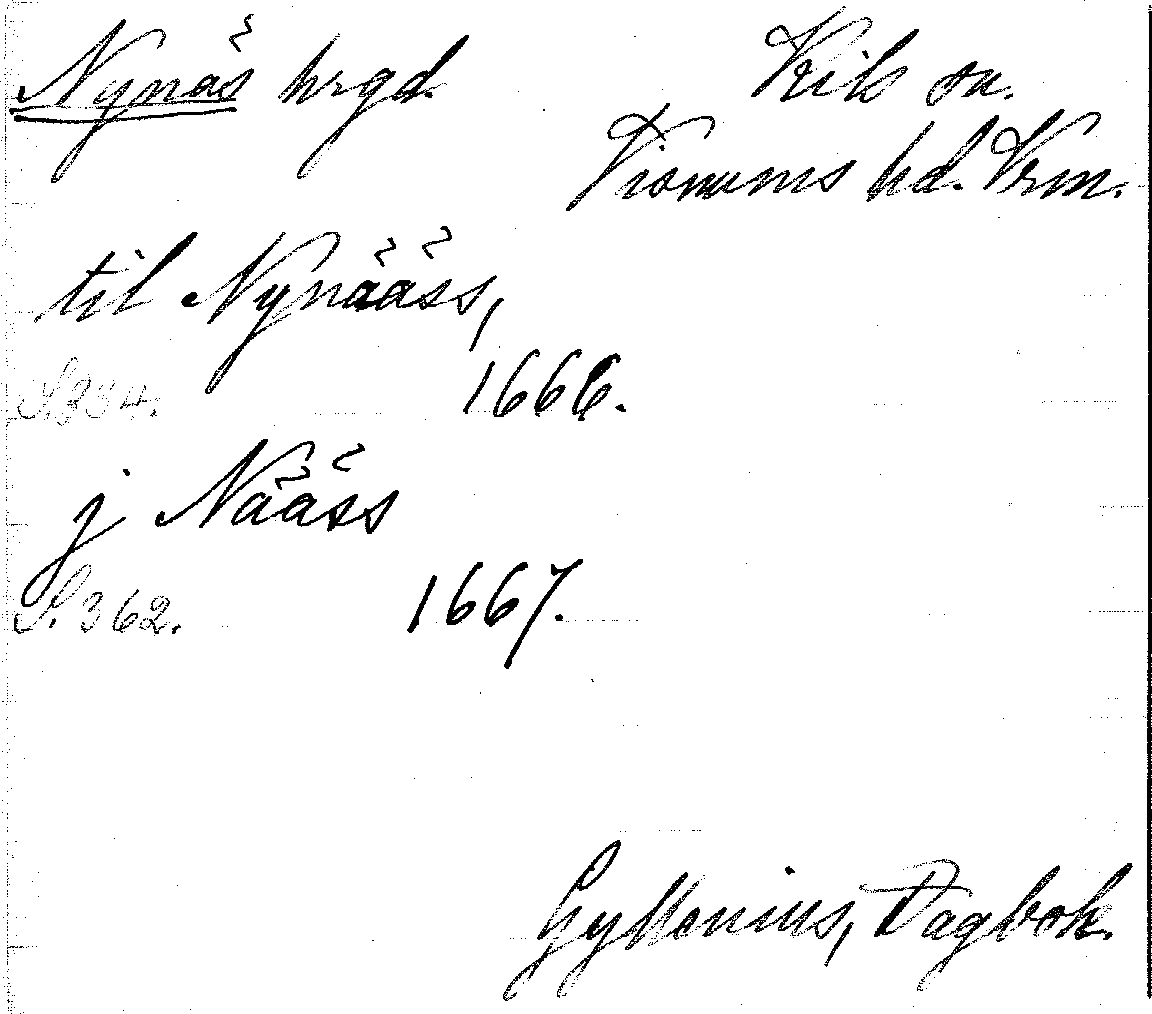 Nynäs hrgd. Kils sn.
Visnums hd. Vrm.
til Nynääss,
S.354. 1666.
j Nääss
S.362. 1667.
Gyllenius, Dagbok.